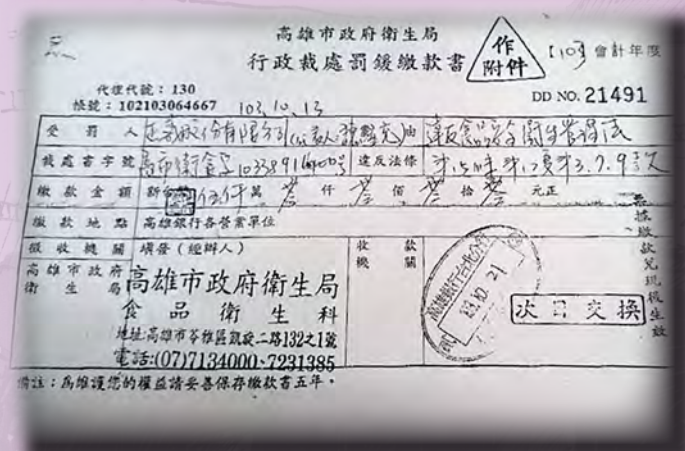 高雄市政府衛生局
行政裁處罰鍰繳款書
作
附件
【103】會計年度
代理代號：130
帳號：102103064667
103.10.13
DD NO. 21491
受罰人 正義股份有限公司 由 違反食品安全衛生管理法
裁處書字號 高市衛食字 違反法條
繳款金額 新台幣 伍仟萬 零仟 零佰 零拾 零 元正
繳款地點 高雄銀行各營業單位
徵收機關 填發（經辦人） 收款機關
高雄市政府衛生局
高雄市政府衛生局
食品衛生科
地址:高雄市苓雅區凱旋二路132之1號
電話:(07)7134000、7231385
高雄銀行台北分行
103.10.21
次日交換
票據繳款兌現後生效
備註：為維護您的權益請妥善保存繳款書五年。